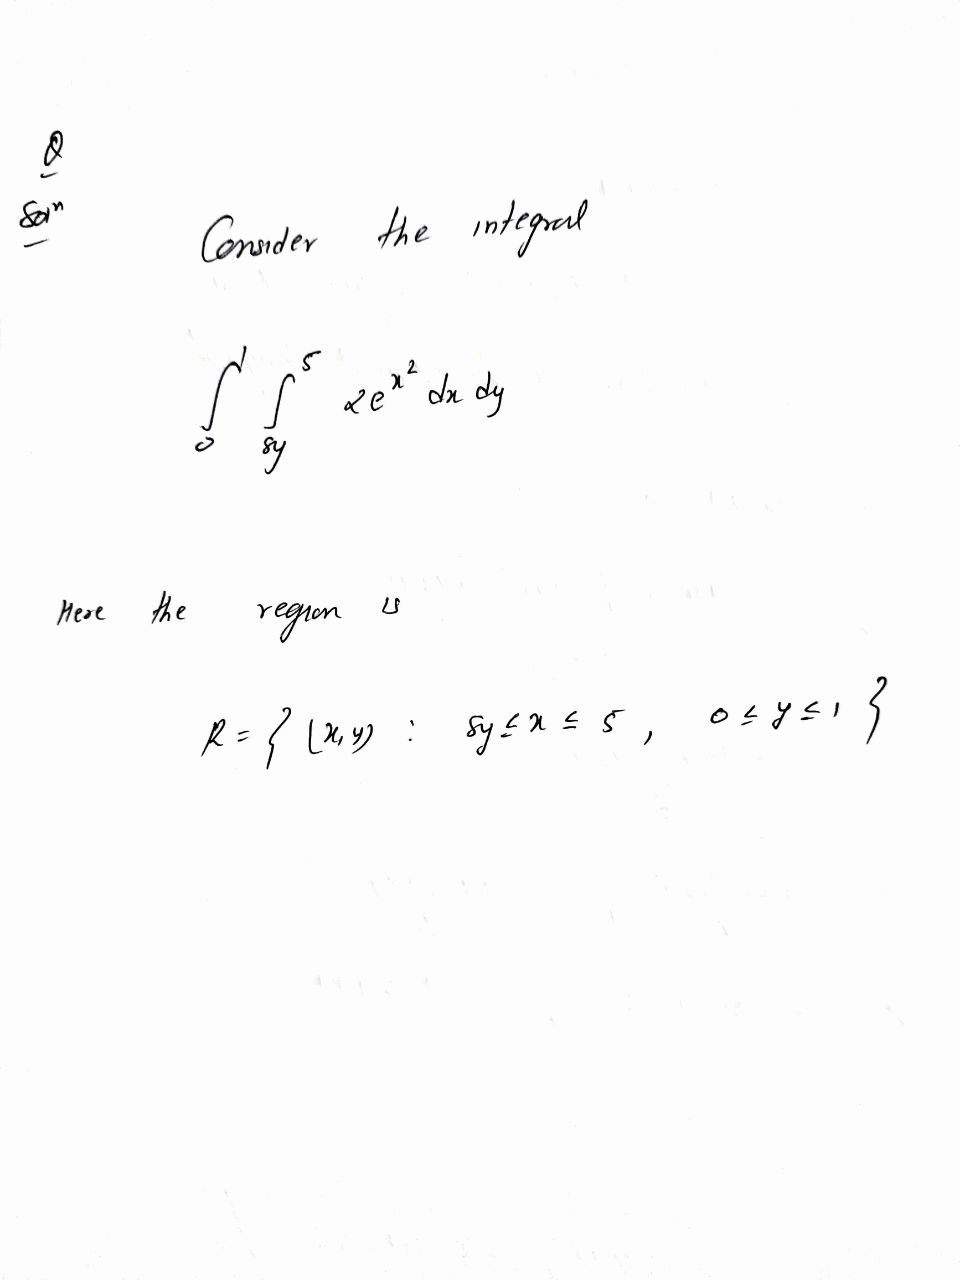 Q
Soln
Consider the integral
∫₀¹ ∫₅ᵧ⁵ 2e^{x²} dx dy
Here the region is
R = { (x, y) : 5y ≤ x ≤ 5, 0 ≤ y ≤ 1 }